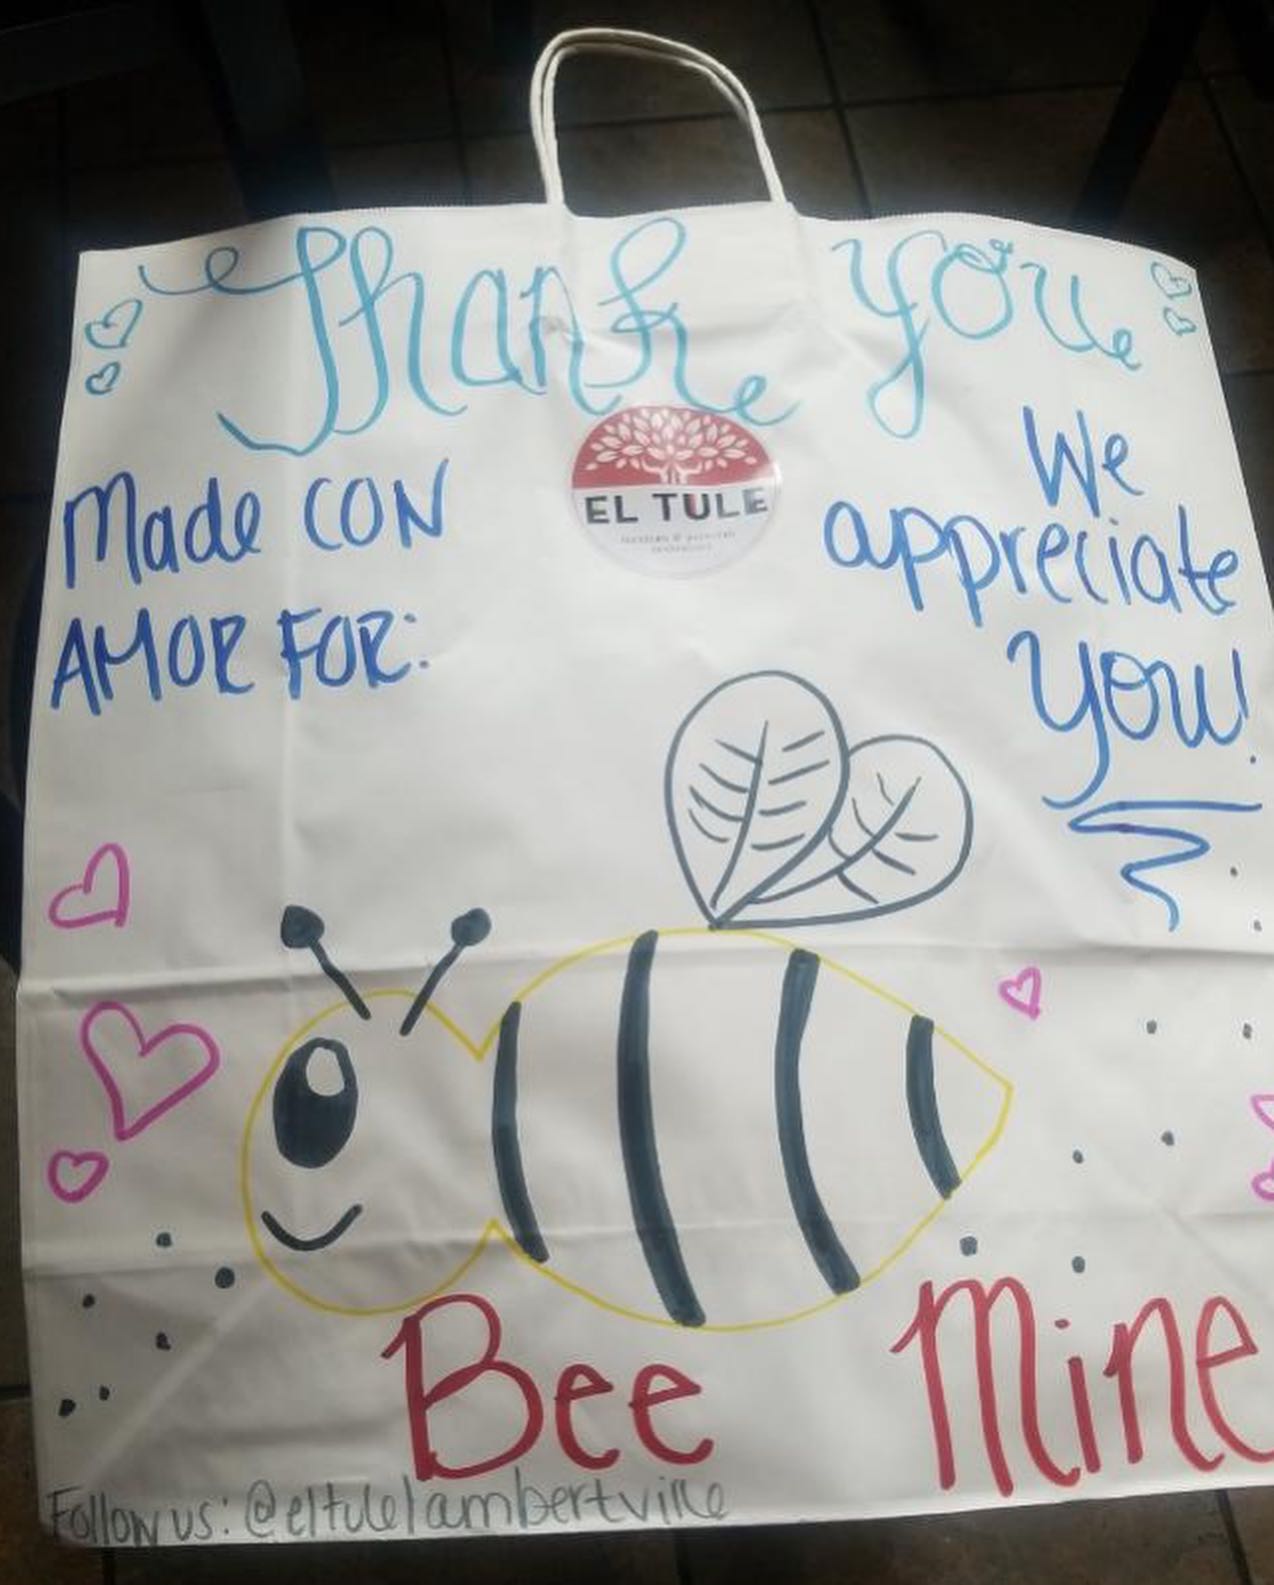 Thank you
Made CON
AMOR FOR:
EL TULE
We
appreciate
you!
Bee Mine
Follow us: @eltulelambertville